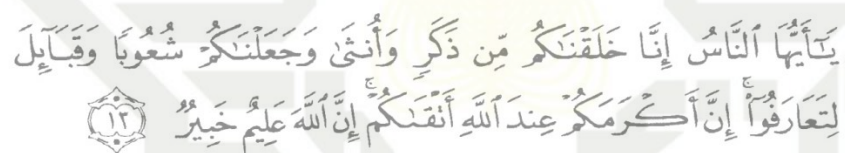 يَـٰٓأَيُّهَا ٱلنَّاسُ إِنَّا خَلَقۡنَـٰكُم مِّن ذَكَرٖ وَأُنثَىٰ وَجَعَلۡنَـٰكُمۡ شُعُوبٗا وَقَبَآئِلَ
لِتَعَارَفُوٓاْۚ إِنَّ أَكۡرَمَكُمۡ عِندَ ٱللَّهِ أَتۡقَىٰكُمۡۚ إِنَّ ٱللَّهَ عَلِيمٌ خَبِيرٞ ١٣